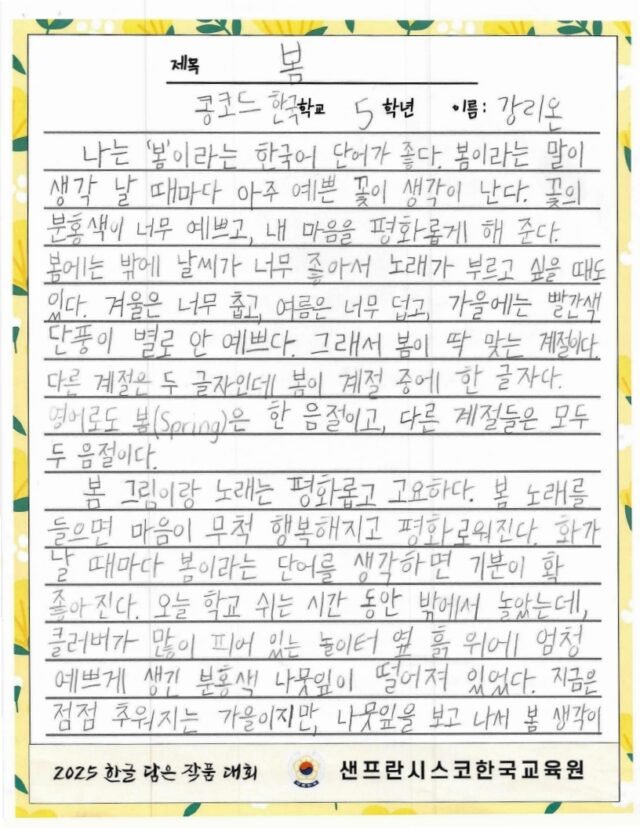 제목 봄
콩코드 한국학교 5 학년 이름: 강리온
나는 '봄'이라는 한국어 단어가 좋다. 봄이라는 말이
생각 날 때마다 아주 예쁜 꽃이 생각이 난다. 꽃의
분홍색이 너무 예쁘고, 내 마음을 평화롭게 해 준다.
봄에는 밖에 날씨가 너무 좋아서 노래가 부르고 싶을 때도
있다. 겨울은 너무 춥고, 여름은 너무 덥고, 가을에는 빨간색
단풍이 별로 안 예쁘다. 그래서 봄이 딱 맞는 계절이다.
다른 계절은 두 글자인데 봄이 계절 중에 한 글자다.
영어로도 봄(Spring)은 한 음절이고, 다른 계절들은 모두
두 음절이다.
봄 그림이랑 노래는 평화롭고 고요하다. 봄 노래를
들으면 마음이 무척 행복해지고 평화로워진다. 화가
날 때마다 봄이라는 단어를 생각하면 기분이 확
좋아진다. 오늘 학교 쉬는 시간 동안 밖에서 놀았는데,
클러버가 많이 피어 있는 놀이터 옆 흙 위에 엄청
예쁘게 생긴 분홍색 나뭇잎이 떨어져 있었다. 지금은
점점 추워지는 가을이지만, 나뭇잎을 보고 나서 봄 생각이
2025 한글 담은 작품 대회 샌프란시스코한국교육원